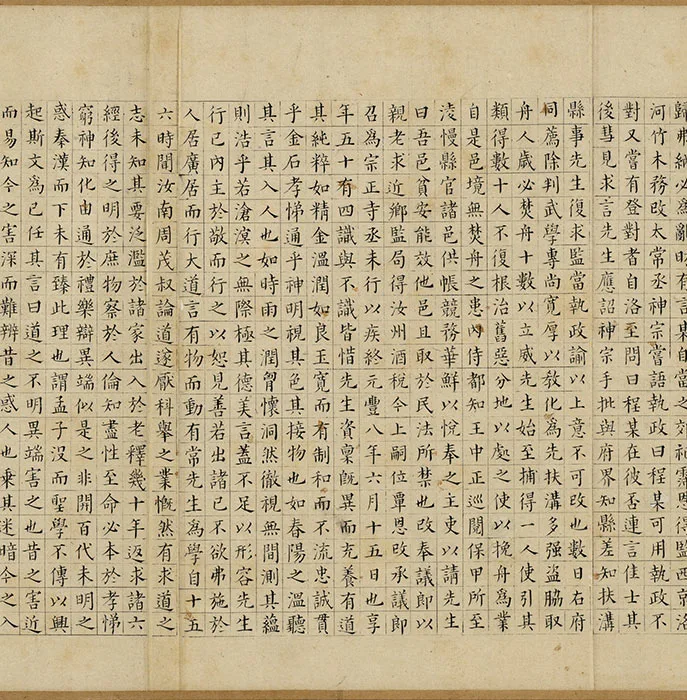 歸弗納必為亂昉有言某自當之郊祀霈恩得監西京洛
河竹木務改太常丞神宗嘗語執政曰程某可用執政不
對又嘗有登對者自洛至問曰程某在彼否連言佳士其
後彗見求言先生應詔神宗手批與府界知縣差知扶溝
縣事先生復求監當執政諭以上意不可改也數日右府
同薦除判武學專尚寬厚以教化為先扶溝多强盜脇取
舟人歲必焚舟十數以立威先生始至捕得一人使引其
類得數十人不復根治舊惡分地以處之使以挽舟為業
自是邑境無焚舟之患內侍都知王中正巡閱保甲所至
淩慢縣官諸邑供帳競務華鮮以悅奉之主吏以請先生
曰吾邑貧安能效他邑且取於民法所禁也改奉議郎以
親老求近鄉監局得汝州酒稅今上嗣位覃恩改承議郎
召為宗正寺丞未行以疾終元豐八年六月十五日也享
年五十有四識與不識皆惜先生資稟既異而充養有道
其純粹如精金溫潤如良玉寬而有制和而不流忠誠貫
乎金石孝悌通乎神明視其色其接物也如春陽之溫聽
其言其入人也如時雨之潤胷懷洞然徹視無間測其蘊
則浩乎若滄溟之無際極其德美言蓋不足以形容先生
行己內主於敬而行之以恕見善若出諸己不欲弗施於
人居廣居而行大道言有物而動有常先生為學自十五
六時聞汝南周茂叔論道遂厭科舉之業慨然有求道之
志未知其要泛濫於諸家出入於老釋幾十年返求諸六
經後得之明於庶物察於人倫知盡性至命必本於孝悌
窮神知化由通於禮樂辯異端似是之非開百代未明之
惑秦漢而下未有臻此理也謂孟子沒而聖學不傳以興
起斯文為己任其言曰道之不明異端害之也昔之害近
而易知今之害深而難辯昔之惑人也乘其迷暗今之入